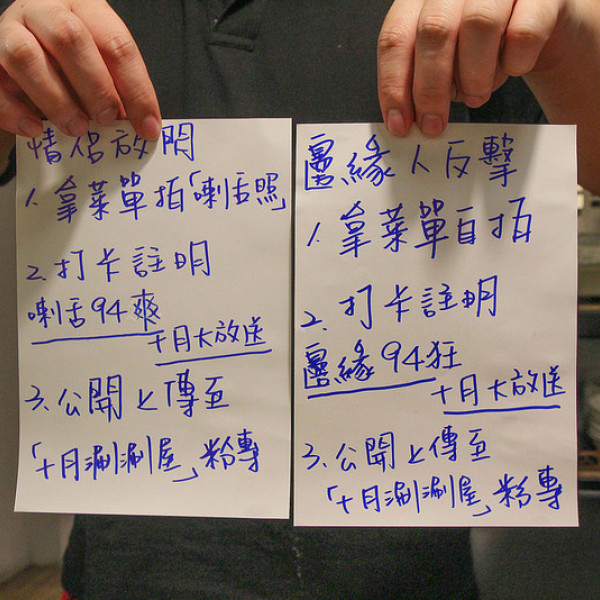 情侶放閃
1. 拿菜單拍「喇舌照」
2. 打卡註明
喇舌94爽
十月大放送
3. 公開上傳至
「十月涮涮屋」粉專
邊緣人反擊
1. 拿菜單自拍
2. 打卡註明
邊緣94狂
十月大放送
3. 公開上傳至
「十月涮涮屋」粉專